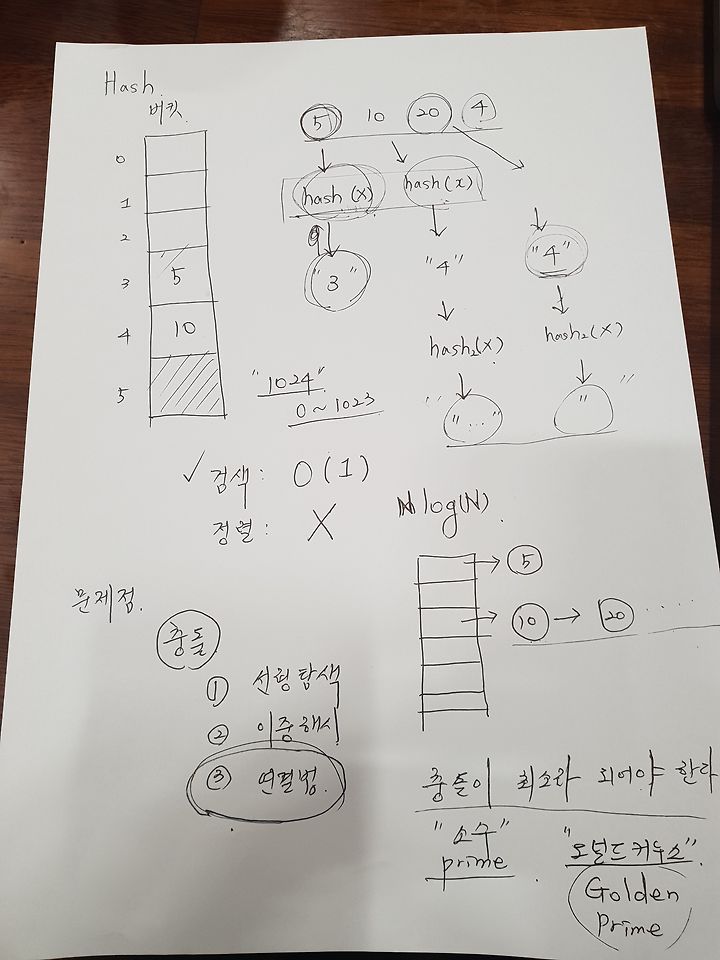 Hash.
버킷
0
1
2
3 5
4 10
5
5 10 20 4
hash(x) hash(x)
"3" "4" "4"
hash₂(x) hash₂(x)
"..." " "
"1024"
0 ~ 1023
✓ 검색: O(1)
정렬: X
N log(N).
→ 5
→ 10 → 20 ......
문제점.
충돌
① 선형탐색
② 이중해시
③ 연결법.
충돌이 최소화 되어야 한다
"소수" prime.
"도널드 커누스"
Golden
Prime